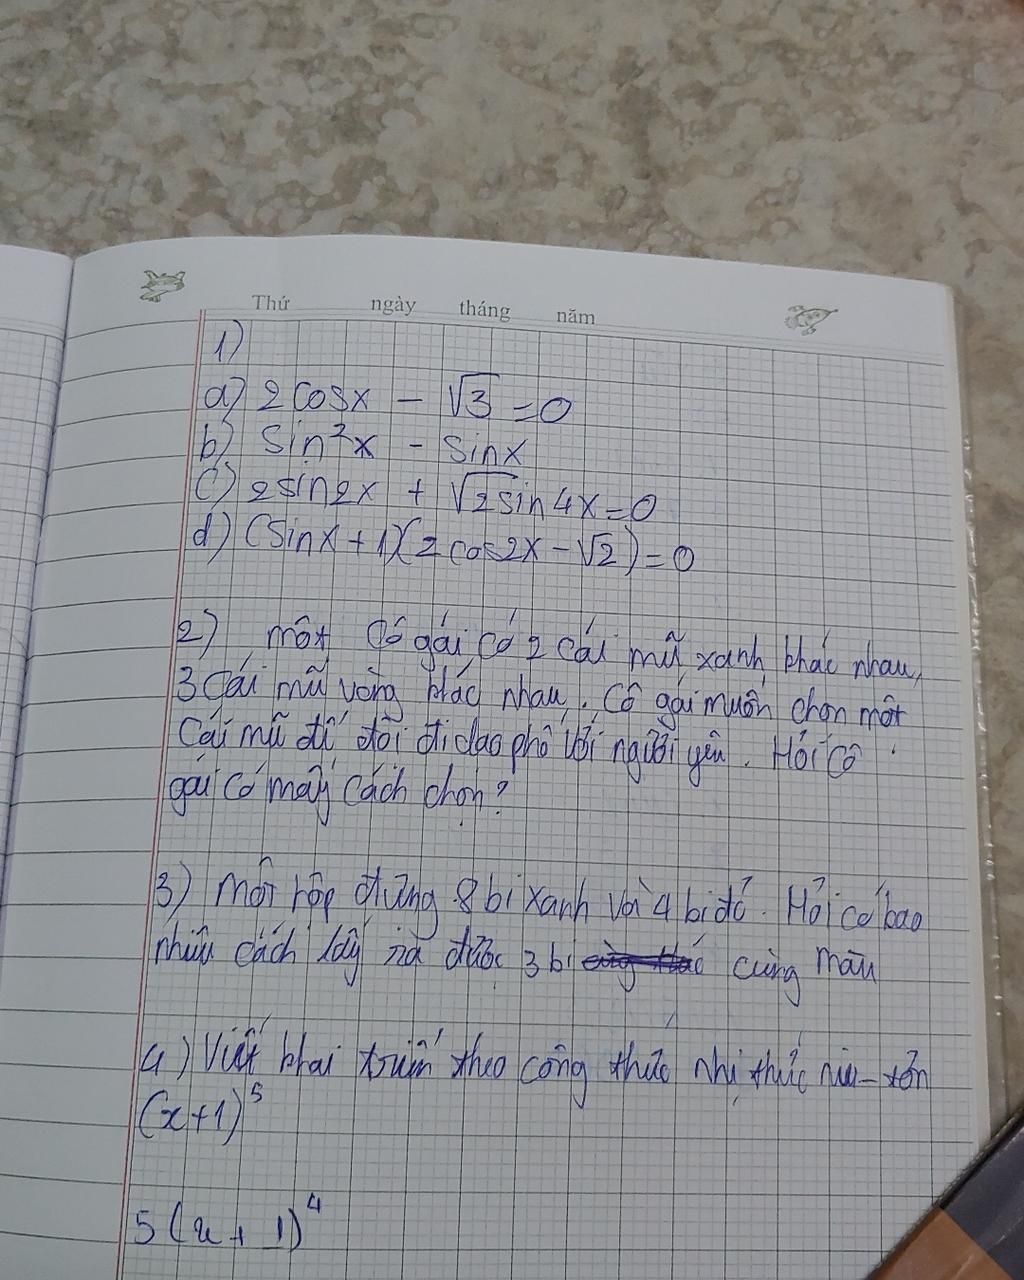 Thứ ngày tháng năm
1)
a) 2cosx - √3 = 0
b) sin²x - sinx
c) 2sin2x + √2sin4x = 0
d) (sinx + 1)(2cos2x - √2) = 0
2) một cô gái có 2 cái mũ xanh khác nhau,
3 cái mũ vàng khác nhau. Cô gái muốn chọn một
cái mũ để đội đi dạo phố với người yêu. Hỏi cô
gái có mấy cách chọn?
3) Một hộp đựng 8 bi xanh và 4 bi đỏ. Hỏi có bao
nhiêu cách lấy ra được 3 bi cùng màu
4) Viết khai triển theo công thức nhị thức niu-tơn
(x+1)⁵
5 (x + 1)⁴